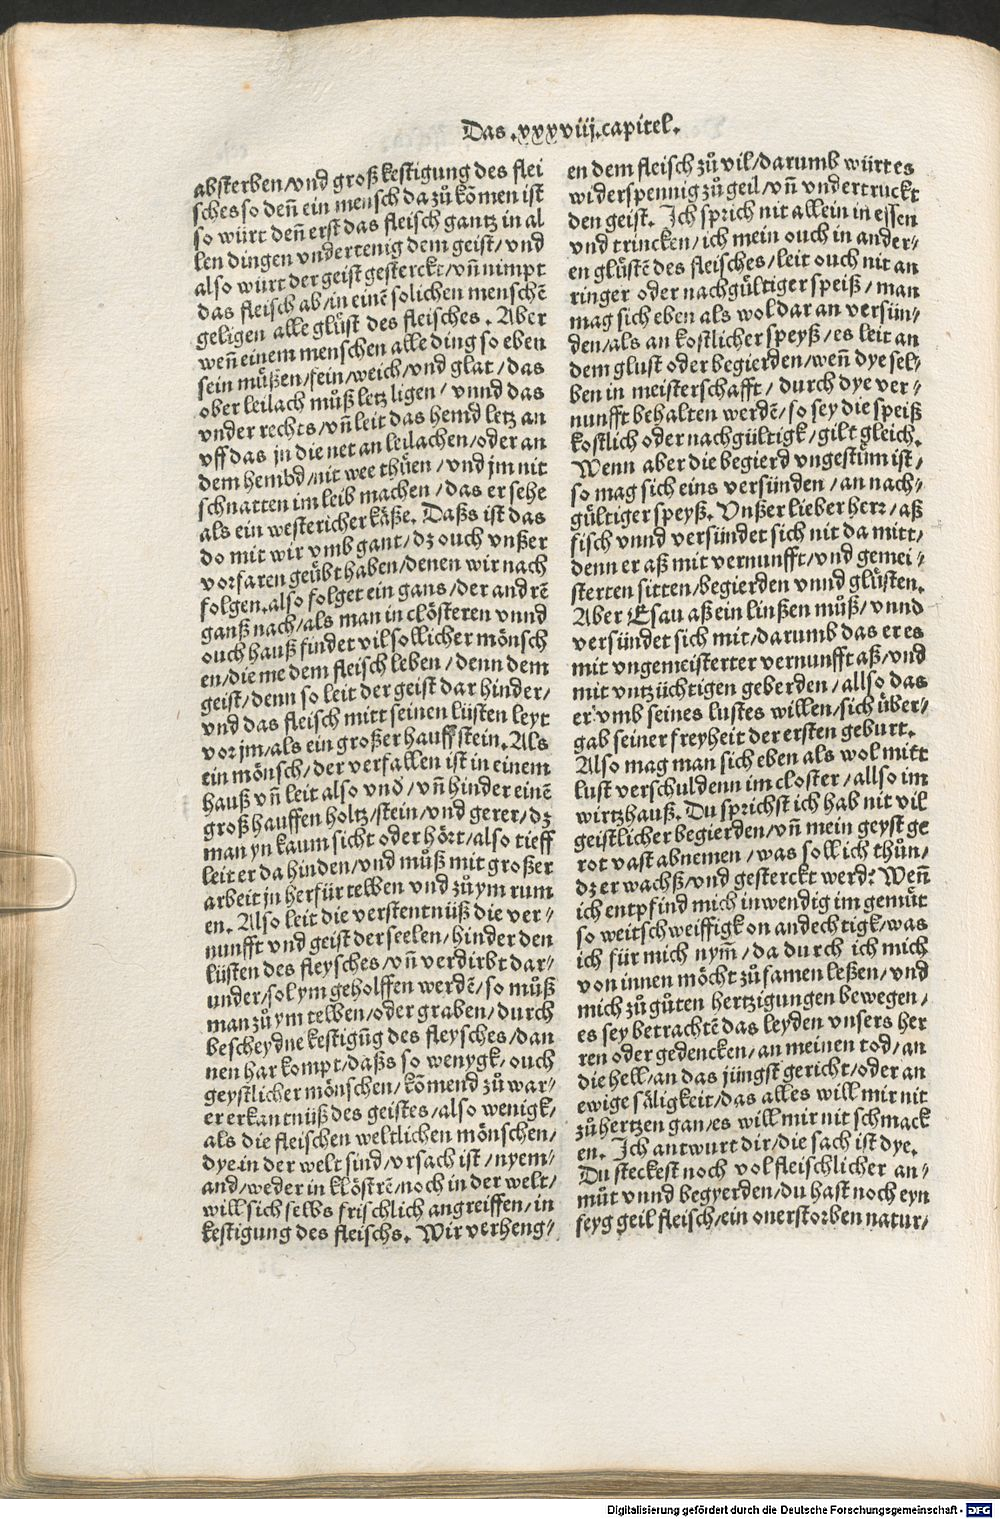 Das .xxxviij. capitel.
absterben/vnd groß kestigung des flei
sches so deñ ein mensch da zů kõmen ist
so würt deñ erst das fleisch gantz in al
len dingen vndertenig dem geist/vnd
also würt der geist gesterckt/vñ nimpt
das fleisch ab/in einẽ solichen menschẽ
geligen alle glüst des fleisches. Aber
weñ einem menschen alle ding so eben
sein müßen/fein/weich/vnd glat/das
ober leilach můß letz ligen/vnnd das
vnder rechts/vñ leit das hemd letz an
vff das jn die net an leilachen/oder an
dem hembd/nit wee thüen/vnd jm nit
schnatten im leib machen/das er sehe
als ein westericher käße. Daßs ist das
do mit wir vmb gant/dz ouch vnßer
vorfaren geübt haben/denen wir nach
folgen. also folget ein gans/der andrẽ
ganß nach/als man in clösteren vnnd
ouch hauß findet vil sollicher mönsch
en/die me dem fleisch leben/denn dem
geist/denn so leit der geist dar hinder/
vnd das fleisch mitt seinen lüsten leyt
vor jm/als ein großer hauff stein. Als
ein mönsch/der verfallen ist in einem
hauß vñ leit also vnð/vñ hinder einẽ
groß hauffen holtz/stein/vnd gerer/dz
man yn kaum sicht oder hört/also tieff
leit er da hinden/vnd můß mit großer
arbeit jn herfür telben vnd zů ym rum
en. Also leit die verstentnüß die ver-
nunfft vnd geist der seelen/hinder den
lüsten des fleysches/vñ verdirbt dar-
under/sol ym geholffen werdẽ/so můß
man zů ym telben/oder graben/durch
bescheydne kestigũg des fleysches/dan
nen har kompt/daßs so wenygk/ouch
geystlicher mönschen/kõmend zů war-
er erkantnüß des geistes/also wenigk/
als die fleischen weltlichen mönschen/
dye in der welt sind/vrsach ist/nyem-
and/weder in klöstrẽ/noch in der welt/
will sich selbs frischlich angreiffen/in
kestigung des fleischs. Wir verheng-
en dem fleisch zů vil/darumb würt es
widerspennig zů geil/vñ vndertruckt
den geist. Ich sprich nit allein in essen
vnd trincken/ich mein ouch in ander-
en glüstẽ des fleisches/leit ouch nit an
ringer oder nachgültiger speiß/man
mag sich eben als wol dar an versün-
den/als an kostlicher speyß/es leit an
dem glust oder begierden/weñ dye sel-
ben in meisterschafft/durch dye ver-
nunfft behalten werdẽ/so sey die speiß
kostlich oder nachgültigk/gilt gleich.
Wenn aber die begierd vngestüm ist/
so mag sich eins versünden/an nach-
gültiger speyß. Vnßer lieber herr/aß
fisch vnnd versündet sich nit da mitt/
denn er aß mit vernunfft/vnd gemei-
sterten sitten/begierden vnnd glüsten.
Aber Esau aß ein linßen můß/vnnd
versündet sich mit/darumb das er es
mit vngemeisterter vernunfft aß/vnd
mit vntzüchtigen geberden/allso das
er vmb seines lustes willen/sich über-
gab seiner freyheit der ersten geburt.
Also mag man sich eben als wol mitt
lust verschuldenn im closter/allso im
wirtzhauß. Du sprichst ich hab nit vil
geistlicher begierden/vñ mein geyst ge
rot vast abnemen/was soll ich thůn/
dz er wachß/vnd gesterckt werd? Weñ
ich entpfind mich inwendig im gemüt
so weitschweiffigk on andechtigk/was
ich für mich nym̃/da durch ich mich
von innen möcht zů samen leßen/vnd
mich zů gůten hertzigungen bewegen/
es sey betrachtẽ das leyden vnsers her
ren oder gedencken/an meinen tod/an
die hell/an das jüngst gericht/oder an
ewige säligkeit/das alles will mir nit
zů hertzen gan/es will mir nit schmack
en. Ich antwurt dir/die sach ist dye.
Du steckest noch vol fleischlicher an-
můt vnnd begyerden/du hast noch eyn
feyg geil fleisch/ein onerstorben natur/
Digitalisierung gefördert durch die Deutsche Forschungsgemeinschaft - DFG